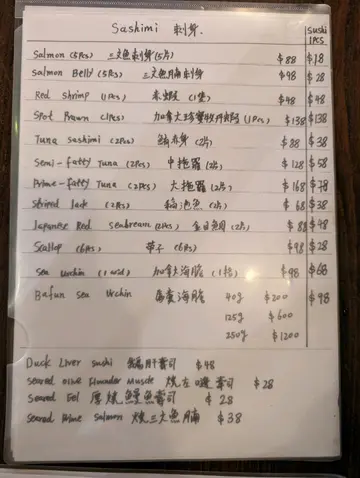 Sashimi 刺身. Sushi 1PCS
Salmon (5Pcs) 三文魚刺身(5片) $88 $18
Salmon Belly (5Pcs) 三文魚腩刺身 $98 $28
Red Shrimp (1Pcs) 赤蝦 (1隻) $48 $48
Spot Prawn (1Pcs) 加拿大珍寶牡丹蝦 (1Pcs) $138 $138
Tuna sashimi (2Pcs) 鮪赤身 (2片) $88 $38
Semi-fatty Tuna (2Pcs) 中拖羅 (2片) $128 $58
Prime-fatty Tuna (2Pcs) 大拖羅 (2片) $168 $78
striped Jack (2Pcs) (2片) $68 $38
Japanese Red seabream (2Pcs) 金目鯛 (2片) $88 $48
Scallop (6Pcs) 帶子 (6Pcs) $98 $28
Sea Urchin (1 加拿大海膽 $98 $68
Bafun Sea Urchin 馬糞海膽 40g $200 $98
125g $600
250g $1200
Duck Liver Sushi 鵝肝壽司 $48
Seared Olive Flounder Muscle 燒左口邊壽司 $28
Seared Eel 厚燒鰻魚壽司 $28
Seared Prime Salmon 燒三文魚腩 $38